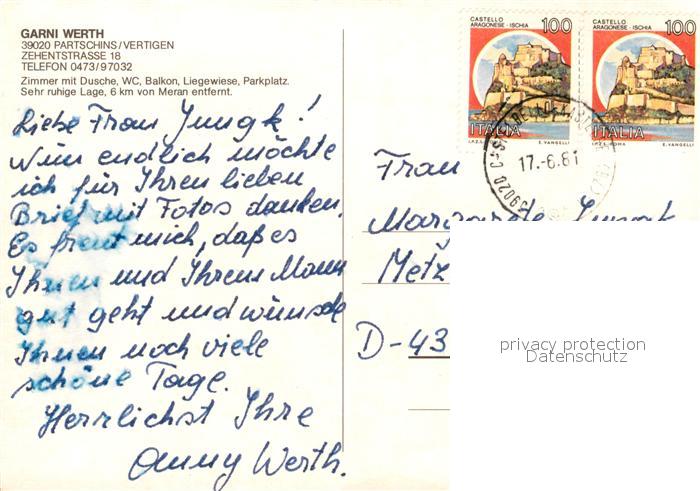 GARNI WERTH
39020 PARTSCHINS/VERTIGEN
ZEHENTSTRASSE 18
TELEFON 0473/97032
Zimmer mit Dusche, WC, Balkon, Liegewiese, Parkplatz.
Sehr ruhige Lage, 6 km von Meran entfernt.
Liebe Frau Jungk!
Nun endlich möchte
ich für Ihren lieben
Brief mit Fotos danken.
Es freut mich, daß es
Ihnen und Ihrem Mann
gut geht und wünsche
Ihnen noch viele
schöne Tage.
Herrlichst Ihre
Anny Werth.
CASTELLO
ARAGONESE - ISCHIA
100
ITALIA
I.P.Z.S.
E. VANGELLI
CASTELLO
ARAGONESE - ISCHIA
100
ITALIA
I.P.Z.S. ROMA
E. VANGELLI
39020
17.-6.81
Frau
Margarete Jungk
Metz
D-43
privacy protection
Datenschutz